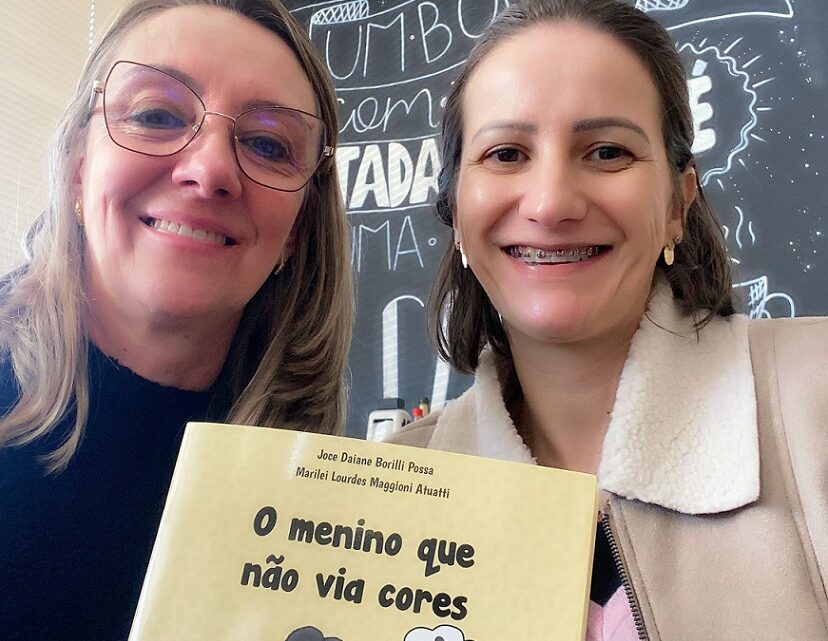 UM·BO
com·
TADA
É
UMA·
Joce Daiane Borilli Possa
Marilei Lourdes Maggioni Atuatti
O menino que
não via cores